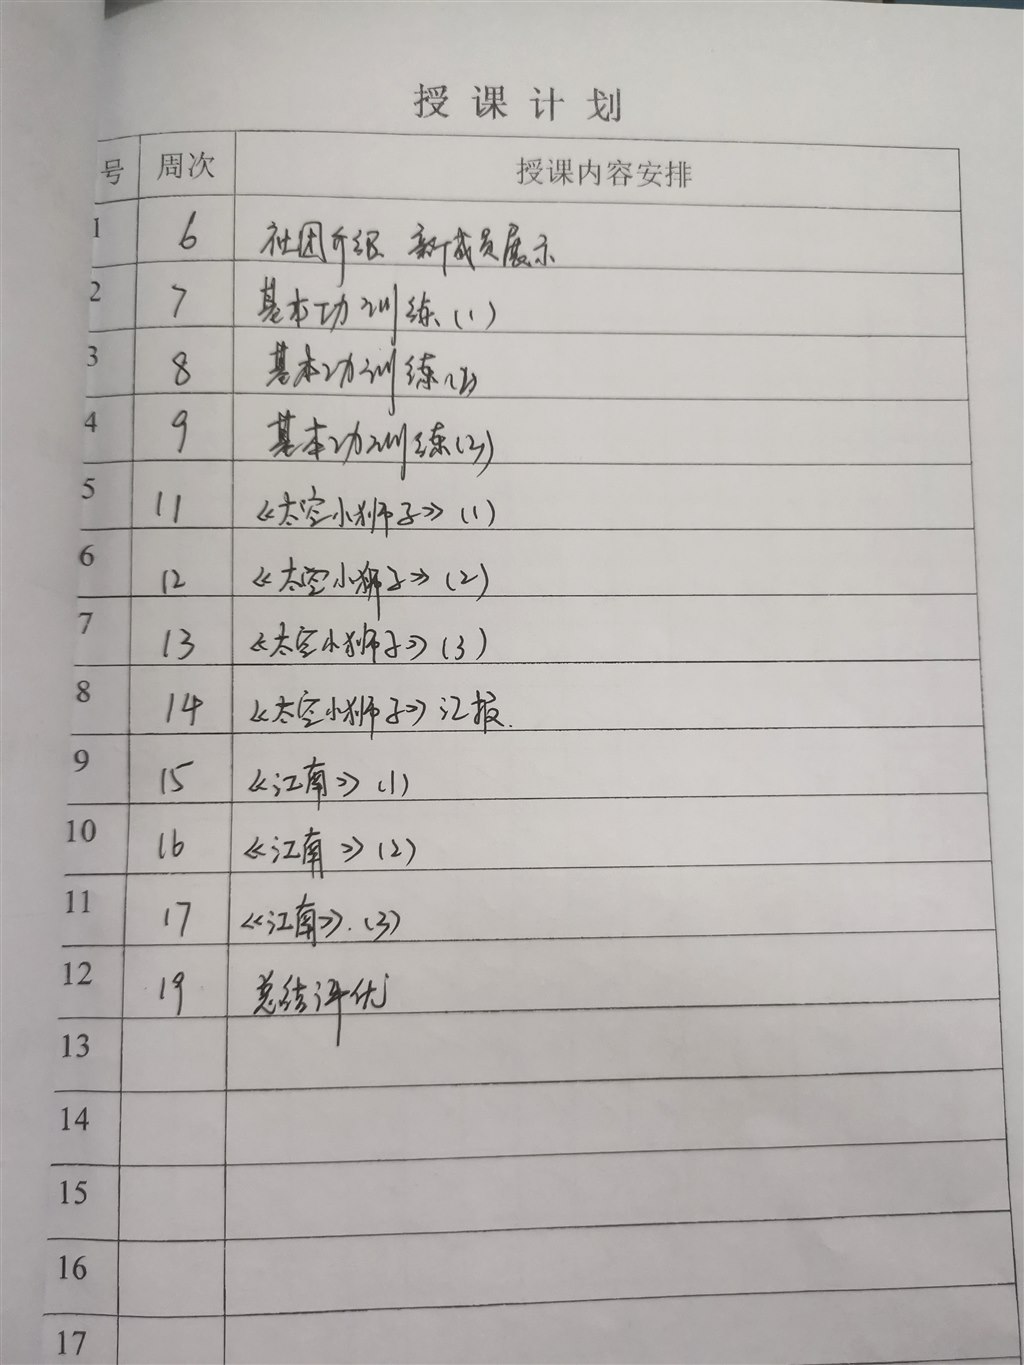 授课计划
号 周次 授课内容安排
1 6 社团介绍 新成员展示
2 7 基本功训练(1)
3 8 基本功训练(2)
4 9 基本功训练(3)
5 11 《太空小狮子》(1)
6 12 《太空小狮子》(2)
7 13 《太空小狮子》(3)
8 14 《太空小狮子》汇报.
9 15 《江南》(1)
10 16 《江南》(2)
11 17 《江南》.(3)
12 19 总结评优
13
14
15
16
17